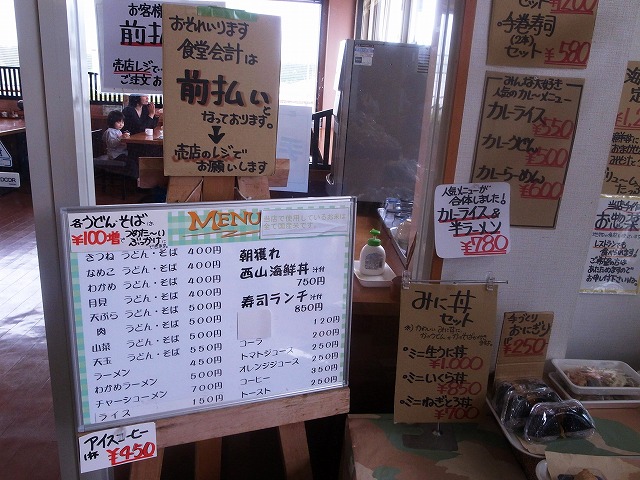 お客様
前払
売店レジで
ご注文
おそれいります
食堂会計は
前払いと
なっております。
売店のレジで
お願いします
手巻寿司
セット
¥580
みんな大好き
人気のカレーメニュー
カレーライス
¥550
カレーうどん
¥500
カレーらーめん
¥600
人気メニューが
合体しました!
カレーライス&
半ラーメン
¥780
各うどん・そば
¥100増
つめた〜い
ぶっかけ
MENU
当店で使用しているお米は
全て国産米です。
きつね うどん・そば 400円
なめこ うどん・そば 400円
わかめ うどん・そば 400円
月見 うどん・そば 400円
天ぷら うどん・そば 500円
肉 うどん・そば 500円
山菜 うどん・そば 500円
天玉 うどん・そば 550円
ラーメン 450円
わかめラーメン 500円
チャーシューメン 700円
ライス 150円
朝獲れ
西山海鮮丼 汁付
750円
寿司ランチ 汁付
850円
120円
コーラ 200円
トマトジュース 250円
オレンジジュース 250円
コーヒー 350円
トースト 250円
アイスコーヒー
1杯 ¥450
みに丼
セット
ミニ生うに丼
¥1,000
ミニいくら丼
ミニねぎとろ丼
¥700
手づくり
おにぎり
¥250